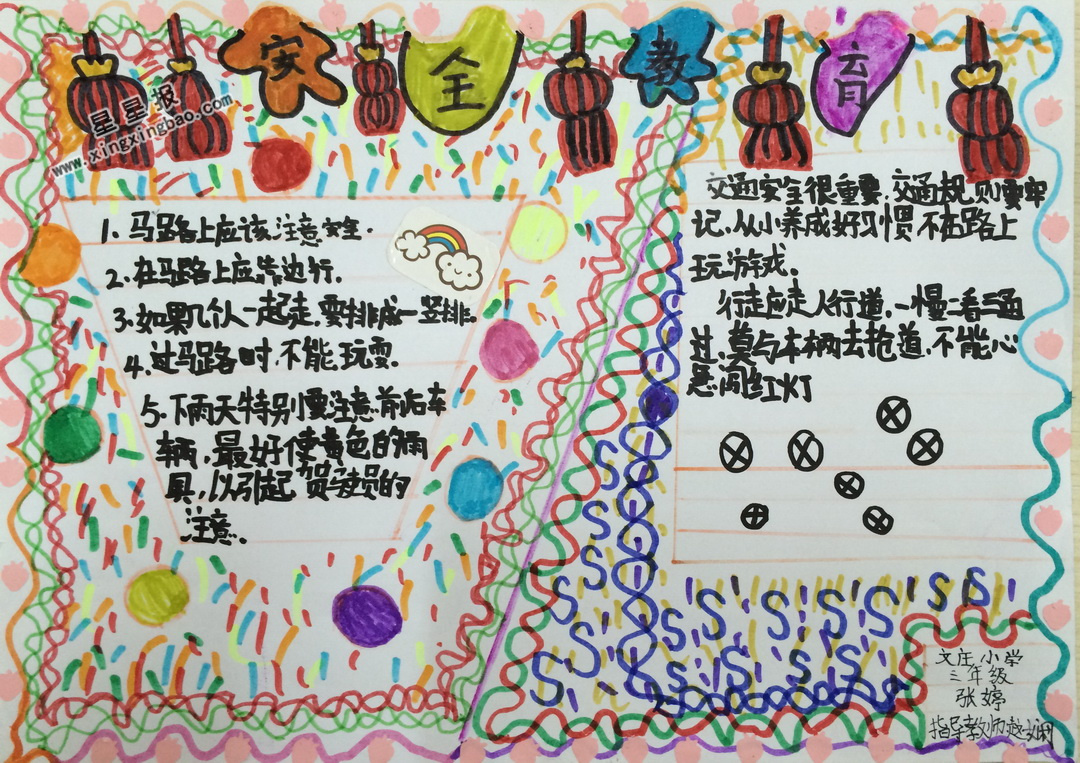 安全教育
星星报
www.xingxingbao.com
1、马路上应该注意安全.
2、在马路上应靠边行.
3、如果几个人一起走,要排成一竖排.
4、过马路时,不能玩耍.
5、下雨天特别要注意前后车
辆,最好使黄色的雨
具,以引起驾驶员的
注意.
交通安全很重要,交通规则要牢
记,从小养成好习惯不在路上
玩游戏.
行走应走人行道,一慢二看三通
过,莫与车辆去抢道,不能心
急闯红灯
文庄小学
三年级
张婷
指导教师赵娴